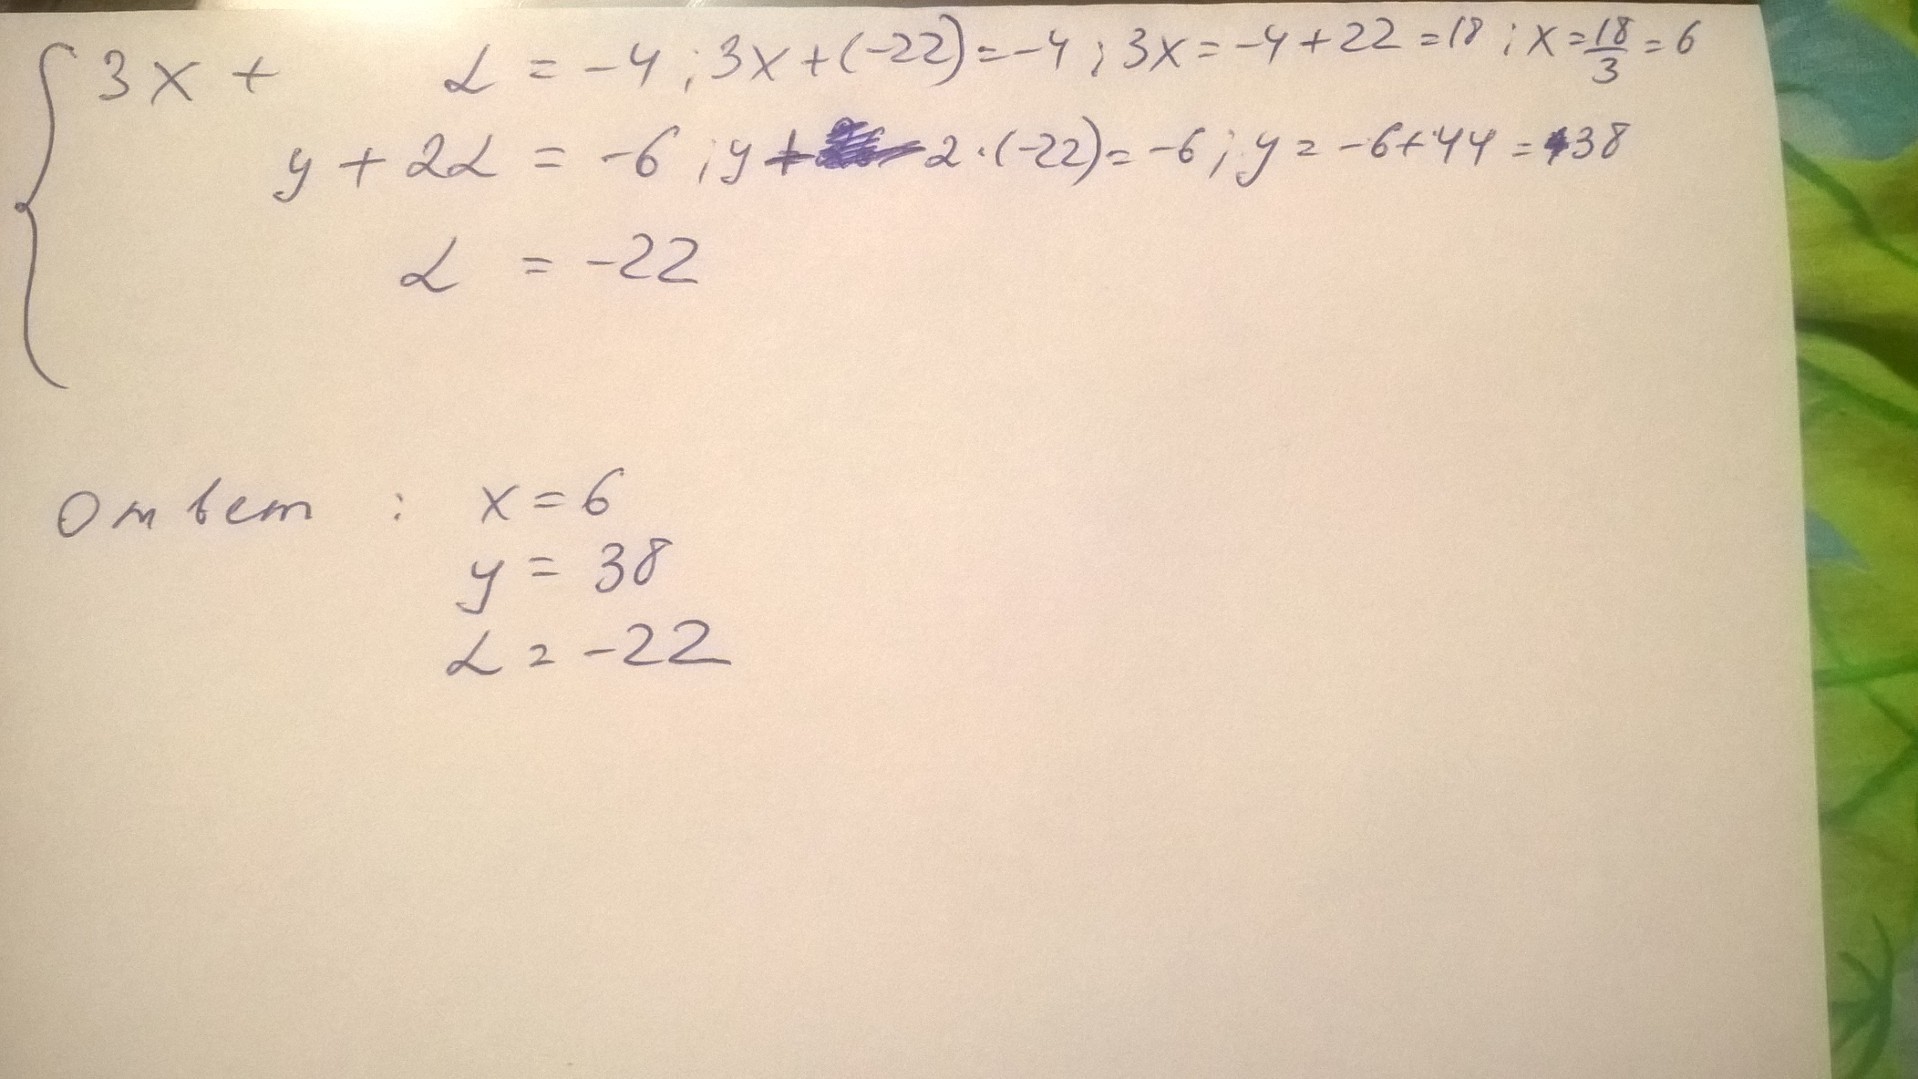 3x + L = -4 ; 3x + (-22) = -4 ; 3x = -4 + 22 = 18 ; x = 18/3 = 6
y + 2L = -6 ; y + 2 · (-22) = -6 ; y = -6 + 44 = 38
L = -22
Ответ : x = 6
y = 38
L = -22